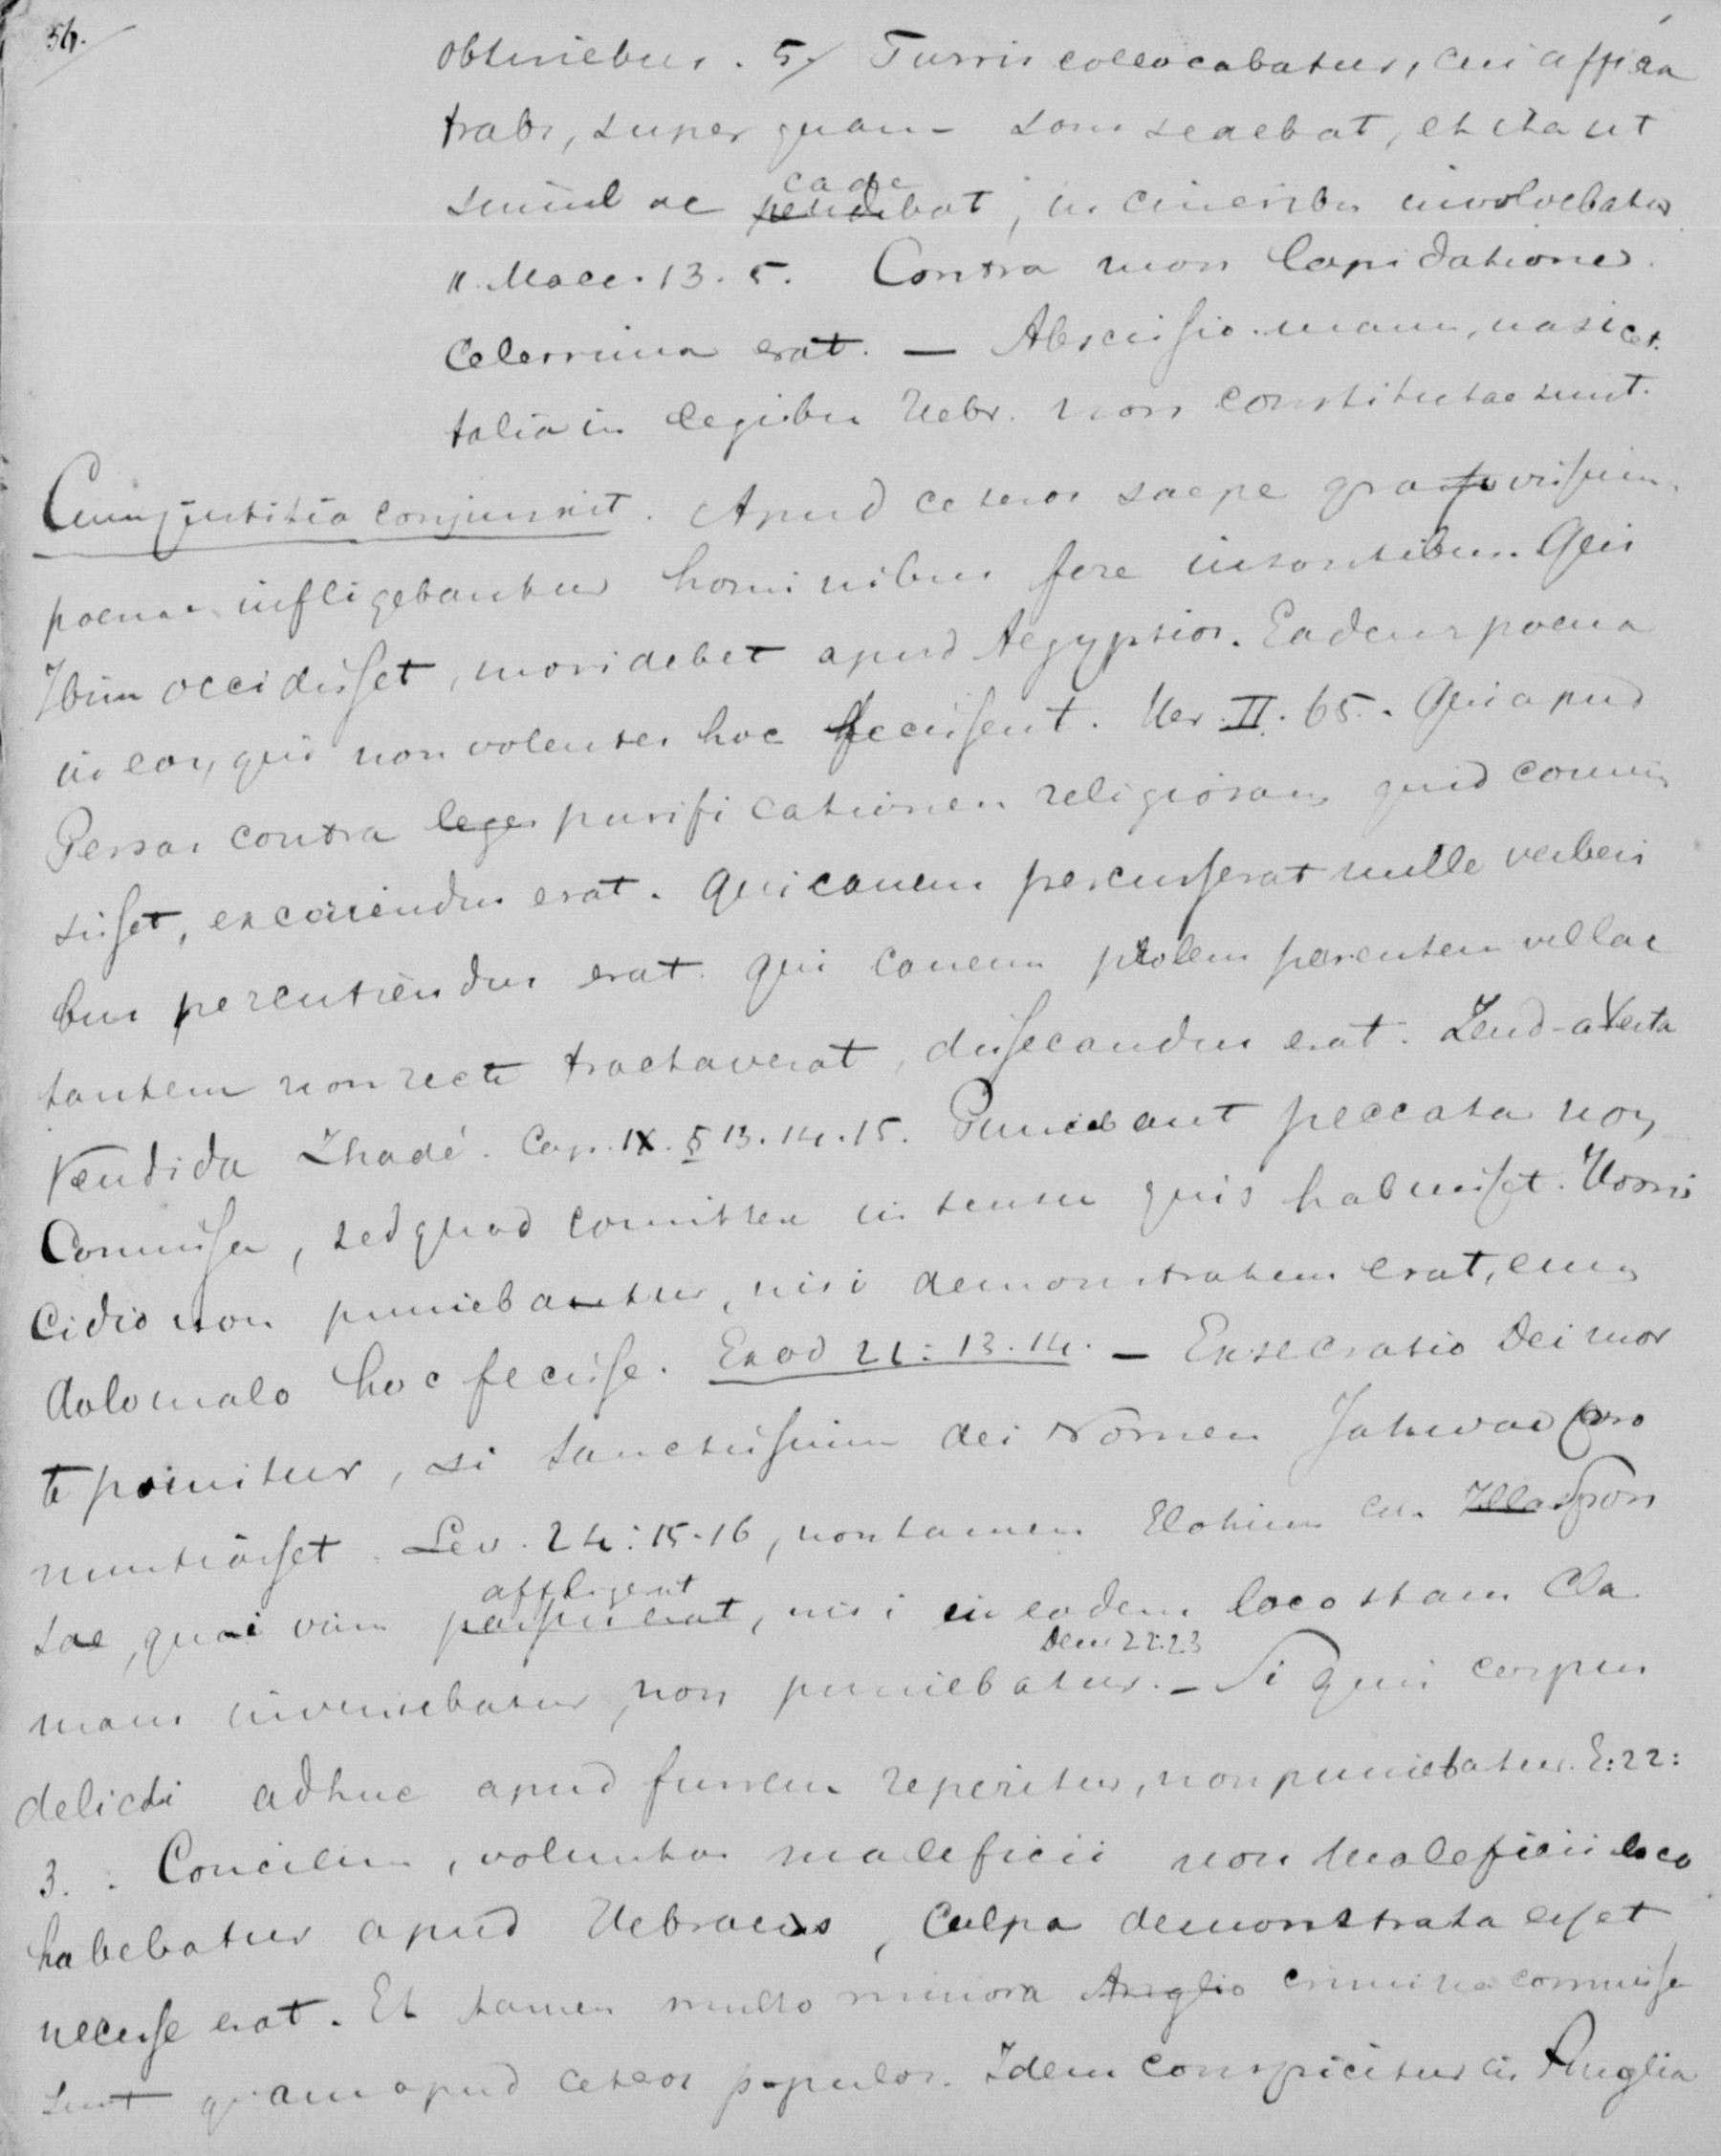 54.
obtinebus. 5/ Turris collocabatur, cui affixa
trabs, super quam sons sedebat, et ita ut
simul ac pendebat cade, in cineribus involvebatur
II. Macc. 13. 5. Contra mors lapidatione
celerrima erat. — Abscissio manu, nasi cet.
talia in legibus Hebr. non constitutae sunt.
Cum justitia conjunxit. Apud ceteros saepe gravissim.
poenae infligebantur hominibus fere insontibus. Qui
Ibim occidisset, mori debet apud Aegyptios. Eadem poena
in eos, qui non volentes hoc fecissent. Her. II. 65. Qui apud
Persas contra leges purificationem religiosam quid commi
sisset, excoriendus erat. Qui canem percusserat mille verberi
bus percutiendus erat. Qui canem prolem parentem vel lac
tantem non recte tractaverat, dissecandus erat. Zend-avesta
Vendida Zhadé. Cap. IX. § 13. 14. 15. Puniebant peccata non
Commissa, sed quod comittere in sensu quis habuisset. Homi
cidio non puniebantur, nisi demonstratum erat, eum
dolo malo hoc fecisse. Exod 21: 13. 14. — Exsecratio Dei mor
te poenitur, si sanctissimum dei Nomen Jahwae pro
nuntiasset. Lev. 24: 15-16, non tamen Elohim cu. Illa Spon
sae, quae vim passa erat affligerat, nisi in eodem loco stam cla
mans inveniebatur, non puniebatur. Deu 22:23 — Si quis corpus
delicti adhuc apud furem reperitur, non puniebatur. E: 22:
3. . Concilium, voluntas maleficii non maleficii loco
habebatur apud Hebraeos, Culpa demonstrata esset
necesse erat. Et tamen multo minora Anglia crimina commissa
sunt quam apud ceteros populos. Idem conspicitur in Anglia